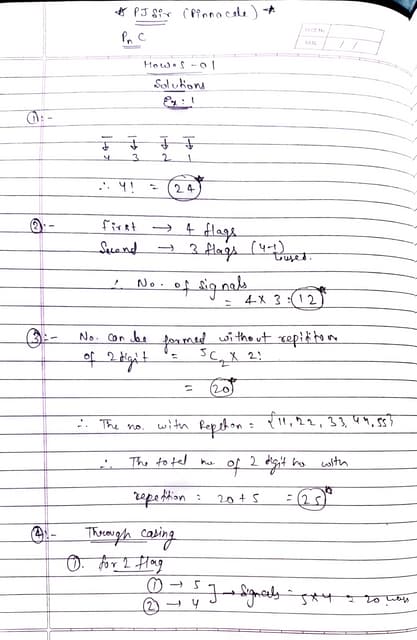 * PJ Sir (Pinnacale) *
PnC
DATE / /
Solutions
Ex: 1
①:-
4 3 2 1
∴ 4! = 24
②:- First → 4 flags
Second → 3 flags (4-1) used.
∴ No. of signals
= 4 x 3 = 12
③:- No. can be formed without repitition
of 2 digit = ⁵C₂ x 2!
= 20
∴ The no. with Repition = {11, 22, 33, 44, 55}
∴ The total no of 2 digit no with
repetition = 20 + 5 = 25
④:- Through casing
①. for 2 flag
① → 5
② → 4 ] → Signals = 5 x 4 = 20 ways